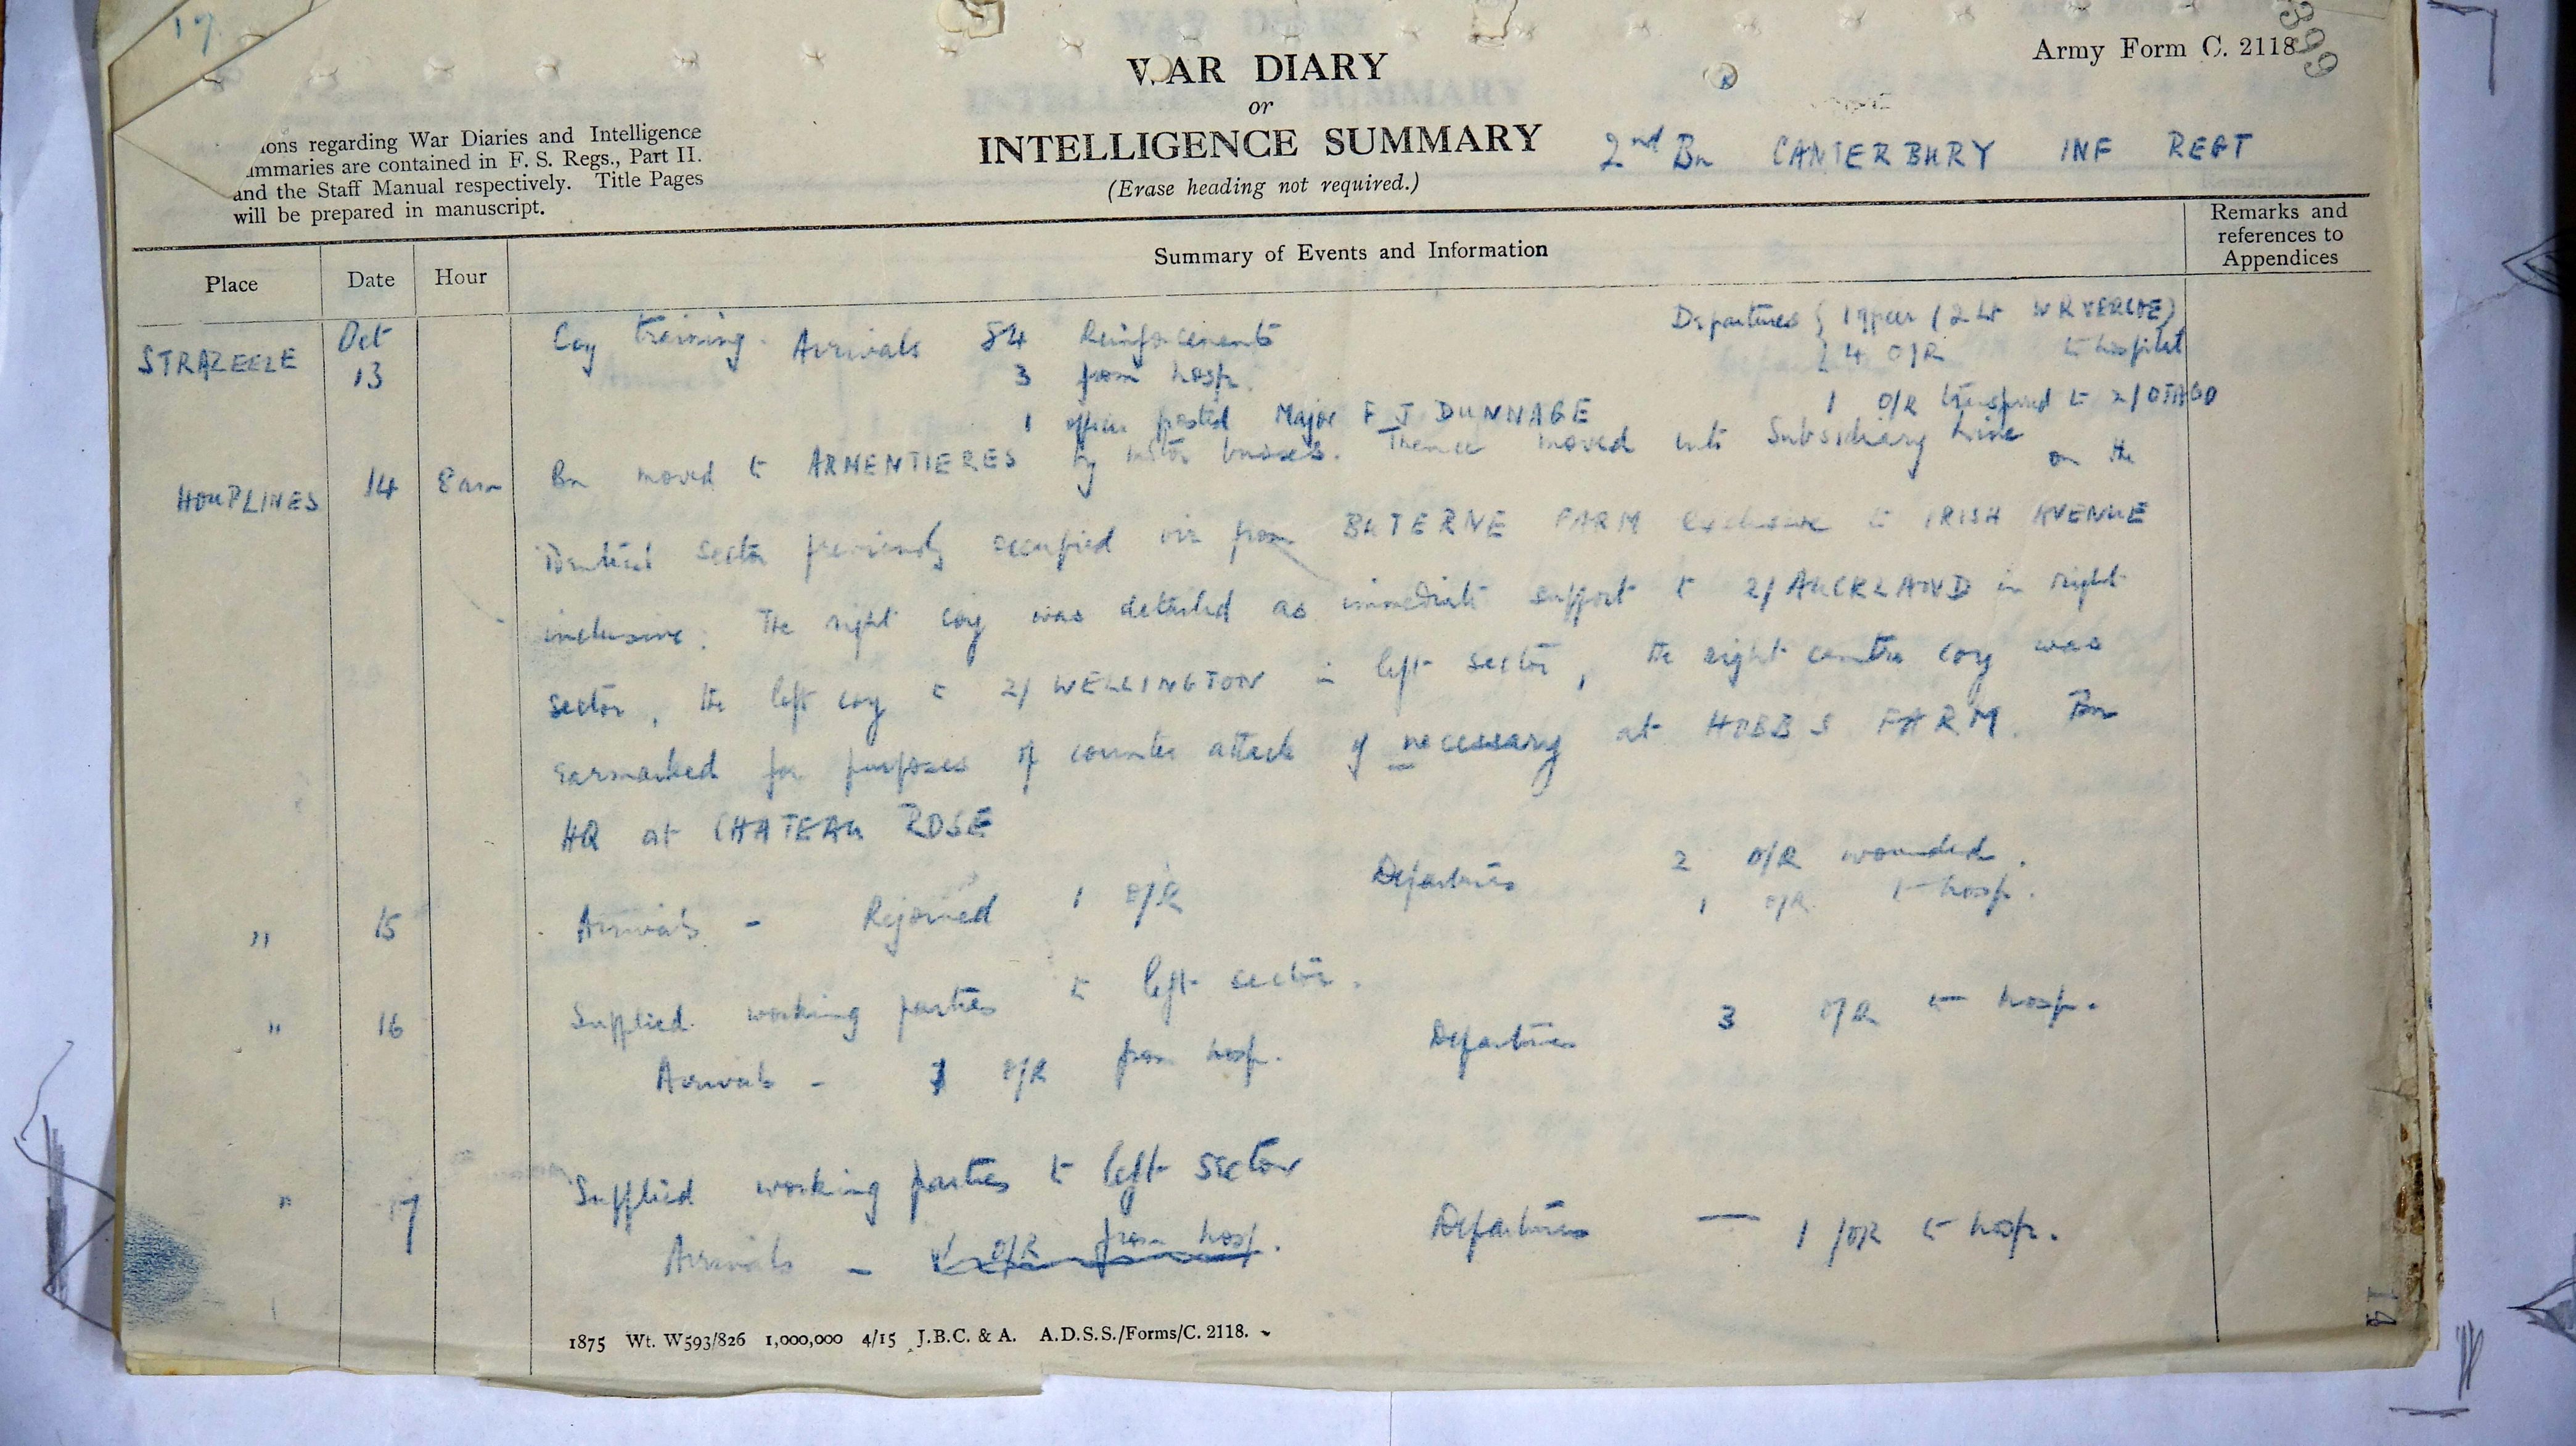 17
Army Form C. 2118
399
WAR DIARY
or
INTELLIGENCE SUMMARY
(Erase heading not required.)
2nd Bn CANTERBURY INF REGT
ions regarding War Diaries and Intelligence
ummaries are contained in F. S. Regs., Part II.
and the Staff Manual respectively. Title Pages
will be prepared in manuscript.
Place Date Hour Summary of Events and Information Remarks and references to Appendices
STRAZEELE Oct 13 Coy training. Arrivals 84 Reinforcements Departures { 1 officer (2 Lt W R VERCOE)
3 from hosp. 4 O/R to hospital
1 officer posted Major F J DUNNAGE 1 O/R transferred to 2/OTAGO
HOUPLINES 14 8 am Bn moved to ARMENTIERES by motor busses. Thence moved into Subsidiary Line on the
identical sector previously occupied viz from BUTERNE FARM exclusive to IRISH AVENUE
inclusive. The right coy was detailed as immediate support to 2/AUCKLAND in right
sector, the left coy to 2/WELLINGTON in left sector, the right centre coy was
earmarked for purposes of counter attack if necessary at HOBBS FARM. Bn
HQ at CHATEAU ROSE
" 15 Arrivals - Rejoined 1 O/R Departures 2 O/R wounded.
1 O/R to hosp.
" 16 Supplied working parties to left sector.
Arrivals - 1 O/R from hosp. Departures 3 O/R to hosp.
" 17 Supplied working parties to left sector
Arrivals - O/R from hosp. Departures — 1 O/R to hosp.
1875 Wt. W593/826 1,000,000 4/15 J.B.C. & A. A.D.S.S./Forms/C. 2118.
14